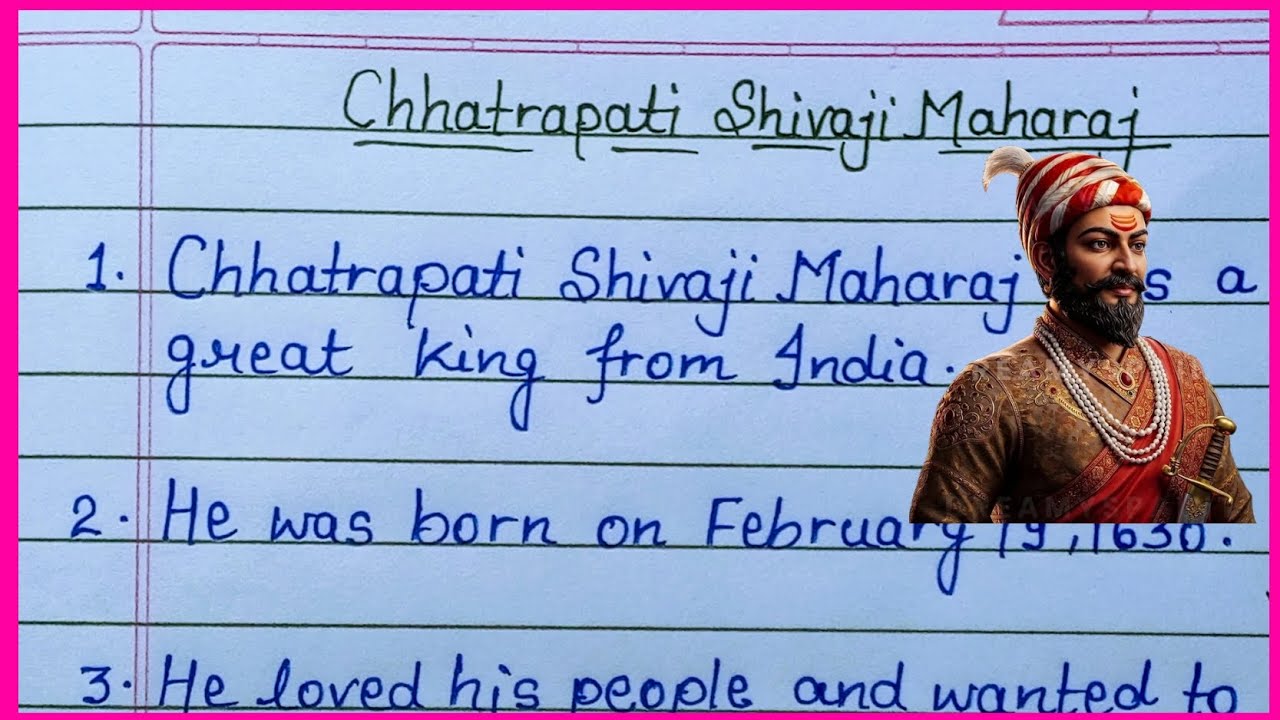 Chhatrapati Shivaji Maharaj
1. Chhatrapati Shivaji Maharaj a
great king from India.
2. He was born on February 19,1630.
3. He loved his people and wanted to